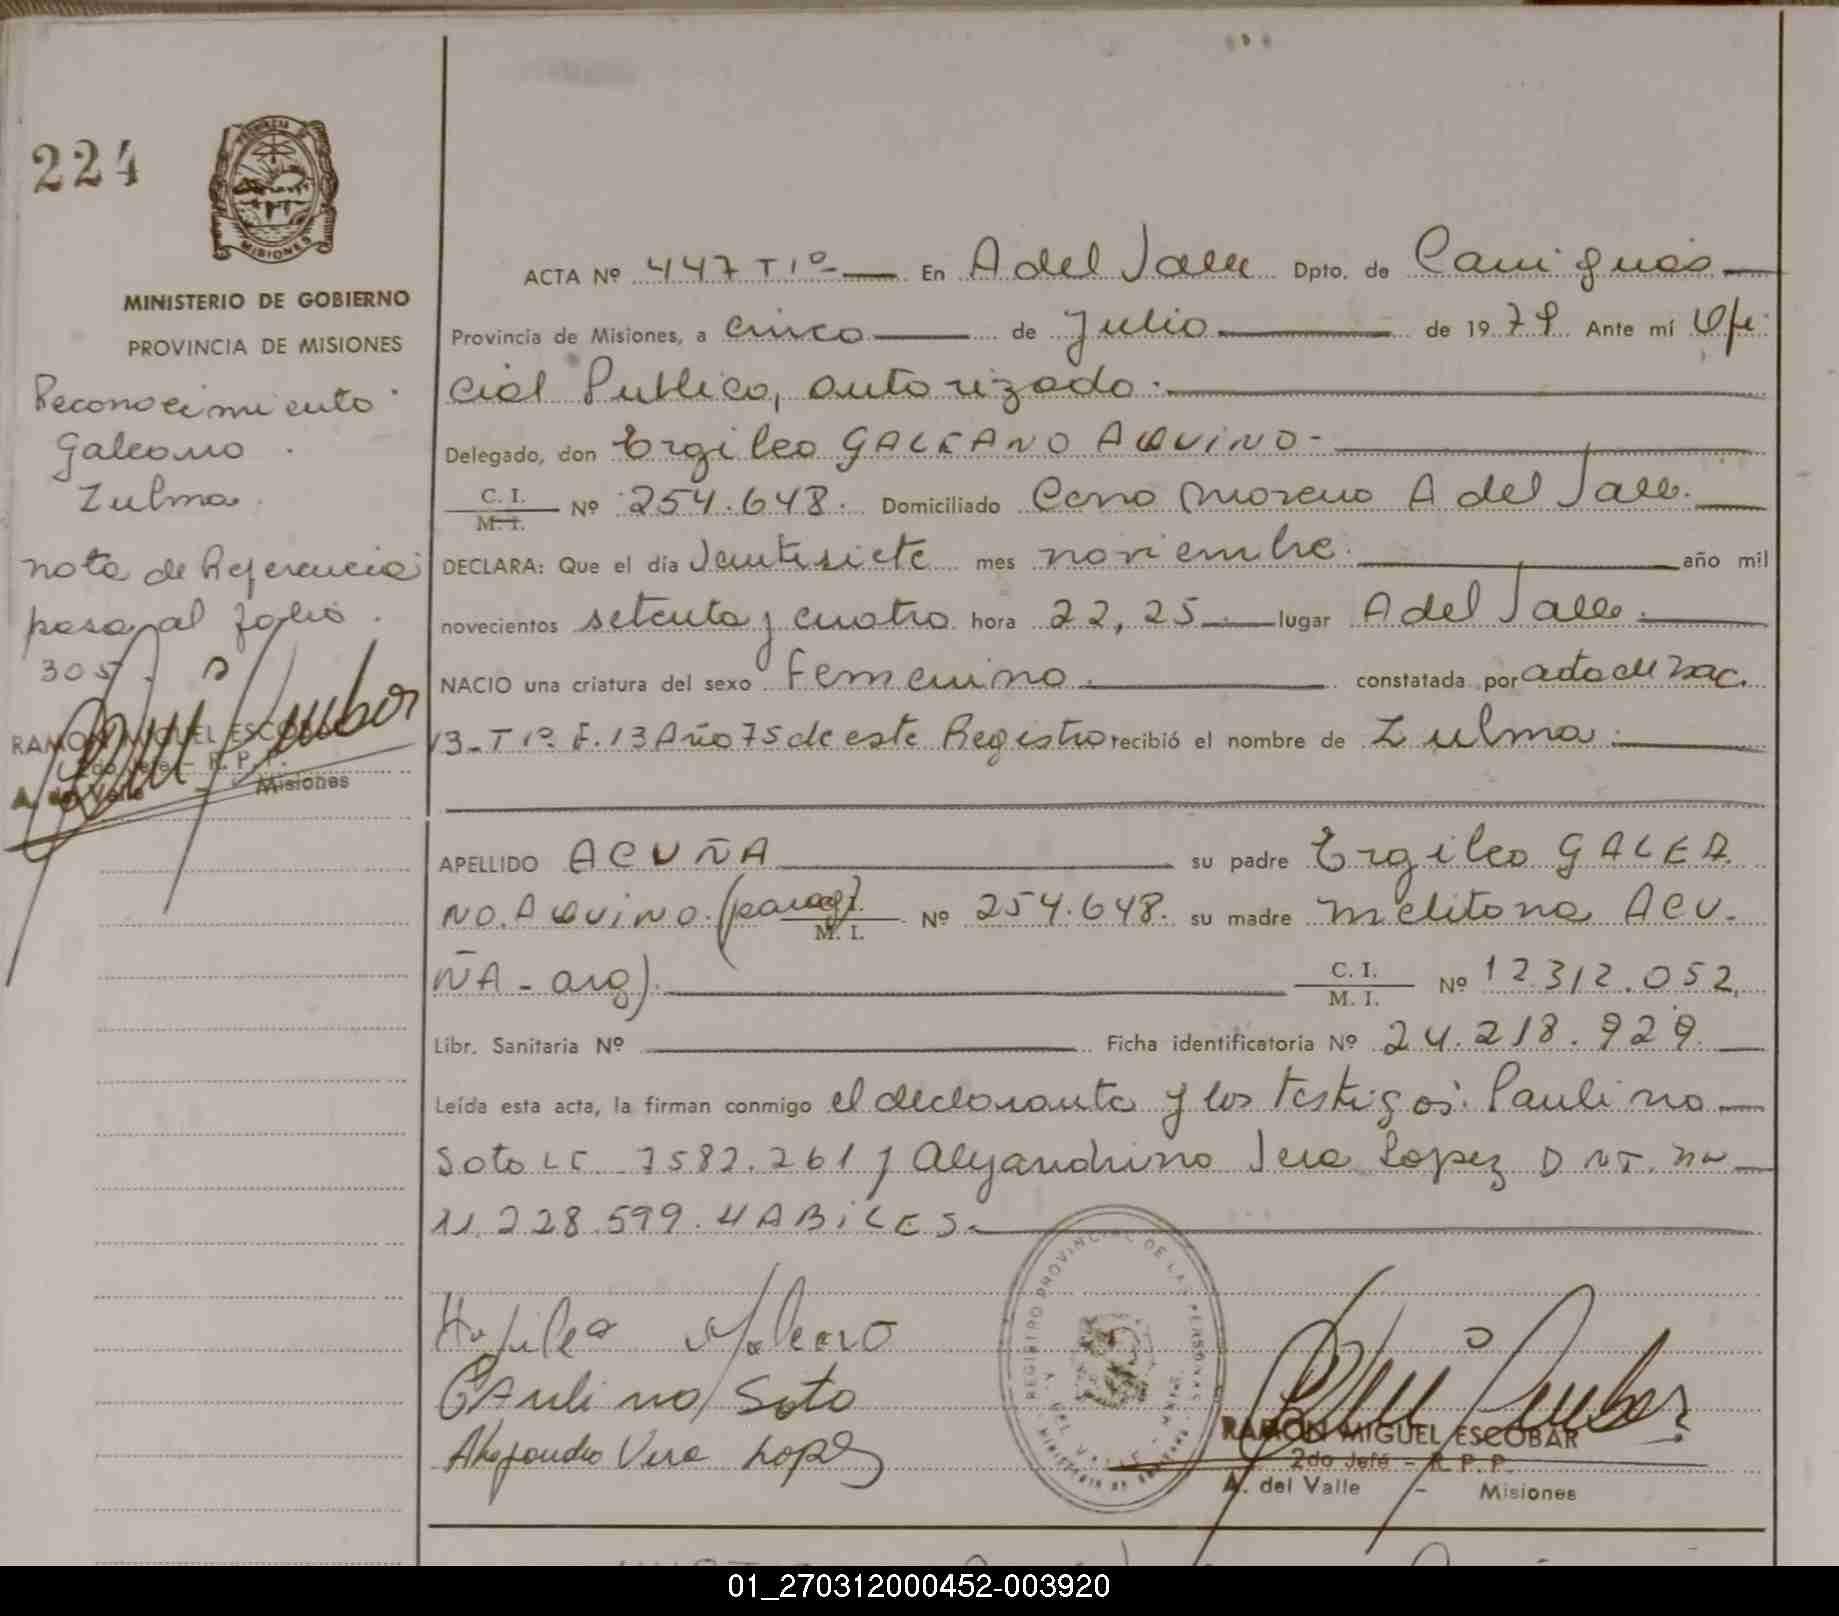 224
MINISTERIO DE GOBIERNO
PROVINCIA DE MISIONES
Reconocimiento
Galeano
Zulma
nota de Referencia
pasa al folio
305
RAMON MIGUEL ESCOBAR
2do Jefe - R. P. P.
A. del Valle - Misiones
ACTA Nº 447 T 1º En A del Valle Dpto. de Cainguás
Provincia de Misiones, a cinco de Julio de 1979 Ante mí Ofi
cial Publico, autorizado.
Delegado, don Ergileo GALEANO AQUINO-
C. I. M. I. Nº 254.648. Domiciliado Cerro Moreno A del Valle.
DECLARA: Que el día Veintisiete mes noviembre. año mil
novecientos setenta y cuatro hora 22,25 lugar A del Valle.
NACIO una criatura del sexo Femenino. constatada por acta de nac.
13-T 1º F.13 Año 75 de este Registro recibió el nombre de Zulma.
APELLIDO ACUÑA su padre Ergileo GALEA
NO. AQUINO. (parag). C. I. M. I. Nº 254.648. su madre Melitona ACU-
ÑA - arg). C. I. M. I. Nº 12.312.052.
Libr. Sanitaria Nº Ficha identificatoria Nº 24.218.929.
Leída esta acta, la firman conmigo el declarante y los testigos: Paulino
Soto LE 7582.261 y Alejandrino Vera Lopez D N I. nº
11.228.599. HABILES.
Galeano
PAulino Soto
Alejandro Vera Lopez
REGISTRO PROVINCIAL DE LAS PERSONAS
A. DEL VALLE
RAMON MIGUEL ESCOBAR
2do Jefe - R. P. P.
A. del Valle - Misiones
01_270312000452-003920